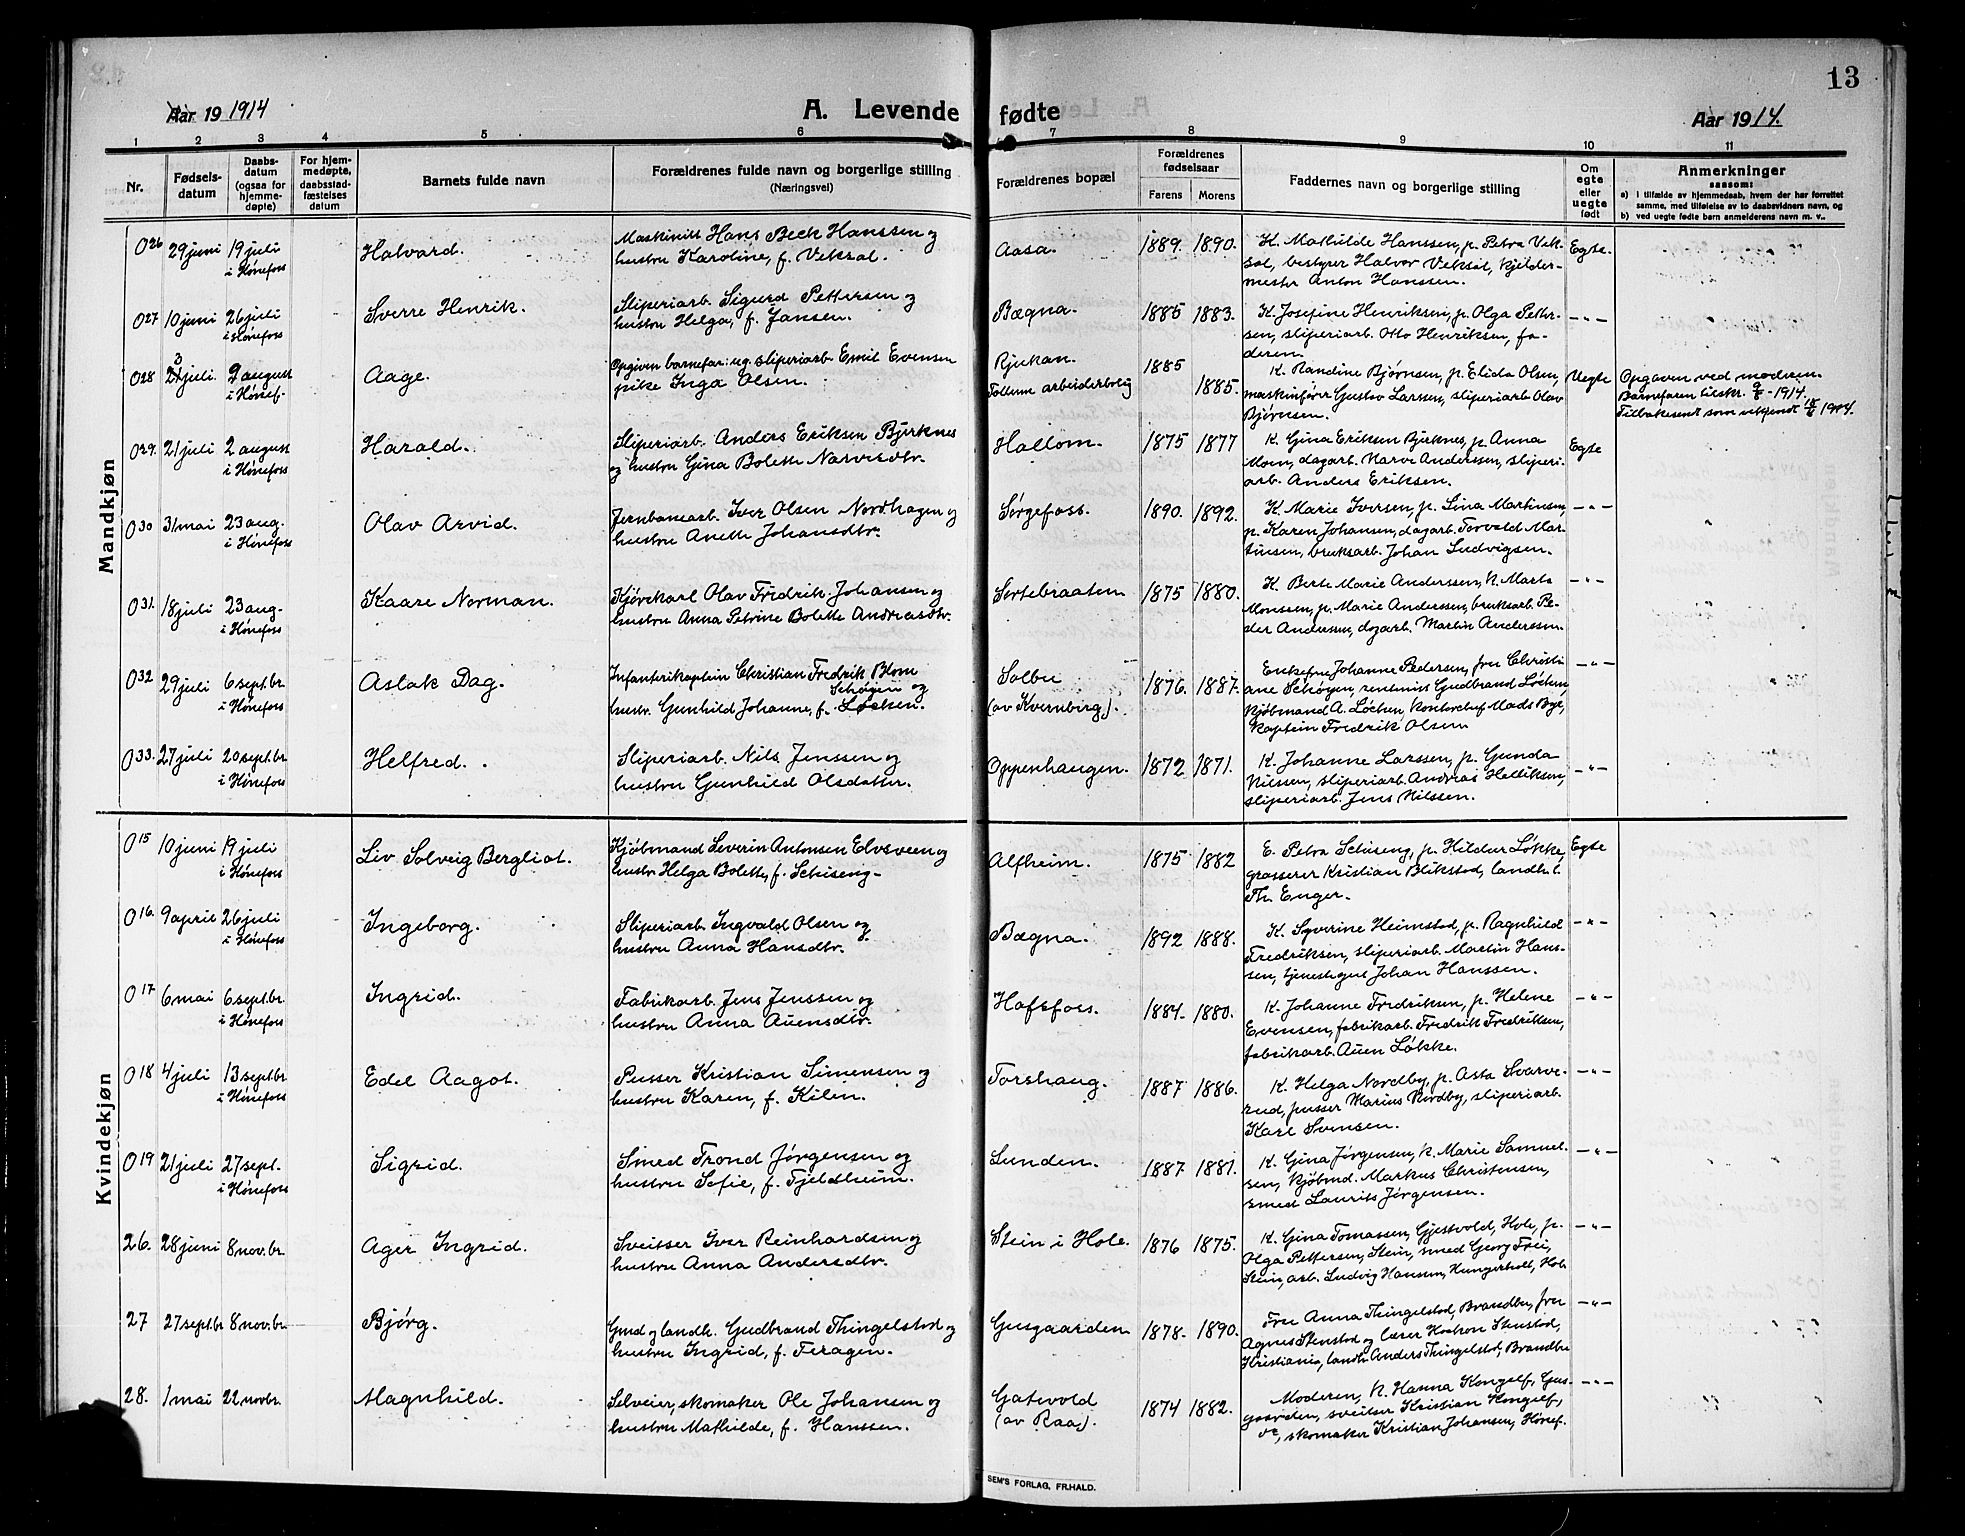 13
Aar 19 1914
A. Levende fødte
Aar 1914.
1 2 3 4 5 6 7 8 9 10 11
Nr.
Fødsels-
datum
Daabs-
datum
(ogsaa for
hjemme-
døpte)
For hjem-
medøpte,
daabsstad-
fæstelses
datum
Barnets fulde navn
Forældrenes fulde navn og borgerlige stilling
(Næringsvei)
Forældrenes bopæl
Forældrenes
fødselsaar
Farens Morens
Faddernes navn og borgerlige stilling
Om
egte
eller
uegte
født
Anmerkninger
saasom:
a) i tilfælde av hjemmedaab, hvem der har forrettet
samme, med tilføielse av to daabsvidners navn, og
b) ved uegte fødte børn anmelderens navn m. v..
Mandkjøn
O26 29 juni 19 juli
i Hønefoss
Halvard.
Maskinist Hans Beck Hanssen og
hustru Karoline, f. Veksal.
Aasa. 1889. 1890.
K. Mathilde Hanssen, p. Petra Vek-
sal, bestyrer Halvor Veksal, kjelder-
mester Anton Hanssen.
Egte.
O27 10 juni 26 juli
i Hønefoss
Sverre Henrik.
Sliperiarb. Sigurd Pettersen og
hustru Helga, f. Jansen.
Bægna. 1885 1883.
K. Josefine Henriksen, p. Olga Petter-
sen, sliperiarb. Otto Henriksen, fa-
deren.
—"—
O28 juli. 2 august
i Hønef.
Aage.
Opgiven barnefar: ug. sliperiarb. Emil Evensen
pike Inga Olsen.
Rjukan. 1885
Follum arbeiderbolig 1885.
K. Randine Bjørnsen, p. Elida Olsen,
maskinfører Gustav Larssen, sliperiarb. Olav
Bjørnsen.
Uegte
Opgaven ved moderen.
Barnefaren tilskr. - 1914.
Tilbakesendt som vekjendt 1914.
O29. 21 juli 2 august
i Hønefoss
Harald.
Sliperiarb. Anders Eriksen Bjerknes
og hustru Gina Bolette Narvesdtr.
Hallom. 1875 1877
K. Gina Eriksen Bjerknes, p. Anna
Moen, dagarb. Narve Anderssen, sliperi-
arb. Anders Eriksen.
Egte
O30 31 mai 23 aug.
i Hønefoss
Olav Arvid.
Jernbanearb. Iver Olsen Nordhagen og
hustru Anette Johansdtr.
Sørgefoss. 1890. 1892.
K. Marie Iversen, p. Lina Martinsen,
p. Karen Johansen, dagarb. Torvald Mar-
tinsen, bruksarb. Johan Ludvigsen.
—"—
O31. 18 juli 23 aug.
i Hønefoss
Kaare Norman.
Kjørekarl Olav Fredrik Johansen og
hustru Anna Petrine Bolette Andreasdtr.
Sortebraaten 1875 1880.
K. Berte Marie Anderssen, k. Marta
Monssen, p. Marie Anderssen, bruksarb. Pe-
der Andersen, dagarb. Martin Anderssen.
—"—
O32 29 juli 6 sept.br
i Hønefoss
Aslak Dag.
Infanterikaptein Christian Fredrik Blom
Schøyen og
hustr. Gunhild Johanne, f. Løcken.
Solbu
(av Kvernberg). 1876. 1887.
Enkefru Johanne Pedersen, fru Christi
ane Schøyen, rentenist Gudbrand Løchen,
kjøbmand A. Løchen, kontorchef Mads Bye,
kaptein Fredrik Olsen.
—"—
O33. 27 juli 20 sept.br
i Hønefoss
Helfred.
Sliperiarb. Nils Jenssen og
hustru Gunhild Olsdatter.
Oppenhaugen. 1872 1871.
K. Johanne Larssen, p. Gunda
Nilssen, sliperiarb. Andreas Helliksen,
sliperiarb. Jens Nilssen.
—"—
Kvindekjøn
O15 10 juni 19 juli
i Hønefoss
Liv Solveig Bergliot.
Kjøbmand Severin Antonsen Elvsveen og
hustr. Helga Bolette, f. Schiseng-
Alfheim. 1875 1882
E. Petra Schiseng, p. Hildur Løkke,
grosserer Kristian Blikstad, landh.
Th. Enger.
Egte
O16. 9 april 26 juli
i Hønefoss
Ingeborg.
Sliperiarb. Ingvald Olsen og
hustru Anna Hansdtr.
Bægna. 1892 1888.
K. Syverine Heimstad, p. Ragnhild
Fredriksen, sliperiarb. Martin Hans-
sen, tjenestegut Johan Hanssen.
—"—
O17 6 mai 6 sept.br.
i Hønefoss
Ingrid.
Fabrikarb. Jens Jenssen og
hustru Anna Auensdtr.
Hofsfoss. 1884. 1880.
K. Johanne Fredriksen, p. Helene
Evensen, fabrikarb. Fredrik Fredriksen,
fabrikarb. Auen Løkke.
—"—
O18 4 juli 13 sept.br
i Hønefoss
Edel Aagot.
Pusser Kristian Simensen og
hustru Karen, f. Kilen.
Torshaug. 1887 1886.
K. Helga Nordby, p. Asta Svarve-
rud, pusser Marius Nordby, sliperiarb.
Karl Svensen.
—"—
O19 21 juli 27 sept.
i Hønefoss
Sigrid.
Smed Trond Jørgensen og
hustru Sofie, f. Fjeldheim.
Lunden. 1887 1881.
K. Gina Jørgensen, k. Marie Samuel-
sen, kjøbmd. Markus Christensen,
smed Laurits Jørgensen.
—"—
26. 28 juni 8 nov.br.
Ager Ingrid.
Sveitser Iver Reinhardsen og
hustru Anna Andersdtr.
Stein i Hole. 1876 1875.
K. Gina Tomassen, Gjestvold, Hole, p.
Olga Pettersen, Stein, smed Georg Frei,
Stein, arb. Ludvig Hansen, Hungerholt, Hole
—"—
27 27 sept.br 8 nov.br.
Bjørg.
Gmd og landh. Gudbrand Thingelstad og
hustru Ingrid, f. Feragen.
Gusgaarden 1878. 1890.
Fru Anna Thingelstad, Brandbu, fru
Agnes Stenstad og lærer Haakon Stenstad,
Kristiania, landh. Anders Thingelstad, Brandbu
—"—
28. 1 mai 22 novbr.
Magnhild.
Selveier, skomaker Ole Johansen og
hustru Mathilde, f. Hanssen.
Gatevold
(av Raa). 1874 1882.
Moderen, k. Hanna Kongelf, Gus-
gaarden, sveitser Kristian Kongelf,
skomaker Kristian Johansen, Hønef.
—"—
SEM'S FORLAG, FR.HALD.